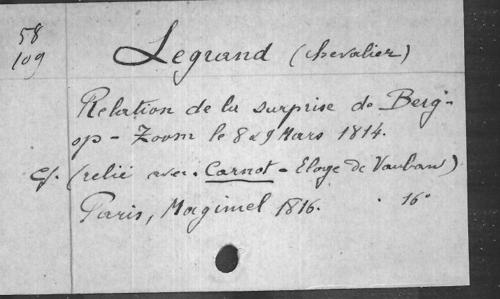 58
109
Legrand (chevalier)
Relation de la surprise de Berg-
op-Zoom le 8 & 9 Mars 1814.
Cf. (relié avec Carnot - Eloge de Vauban)
Paris, Magimel 1816. 16°